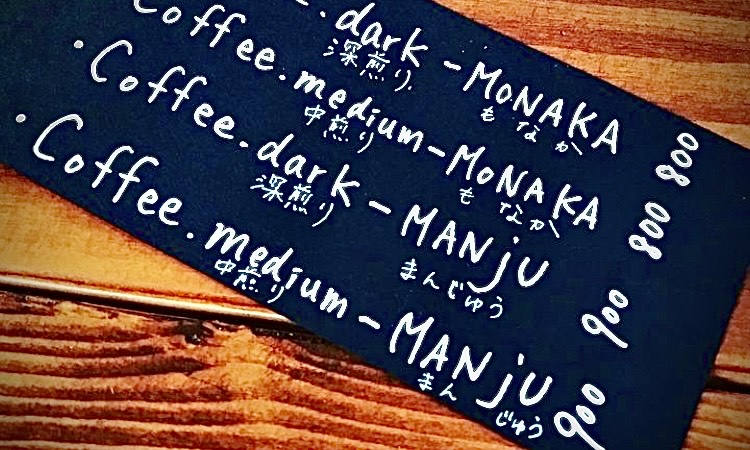 Coffee.dark-MoNAKA 800
深煎り もなか
Coffee.medium-MoNAKA 800
中煎り もなか
・Coffee.dark-MANjU 900
深煎り まんじゅう
・Coffee.medium-MANjU 900
中煎り まんじゅう